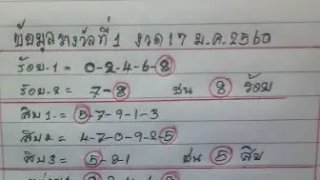 ข้อมูลรางวัลที่ 1 งวด 17 ม.ค. 2560
ร้อย-1 = 0-2-4-6-8
ร้อย-2 = 7-8 ชน 8 ร้อย
สิบ 1 = 5-7-9-1-3
สิบ 2 = 4-7-0-9-2-5
สิบ 3 = 5-8-1 ชน 5 สิบ